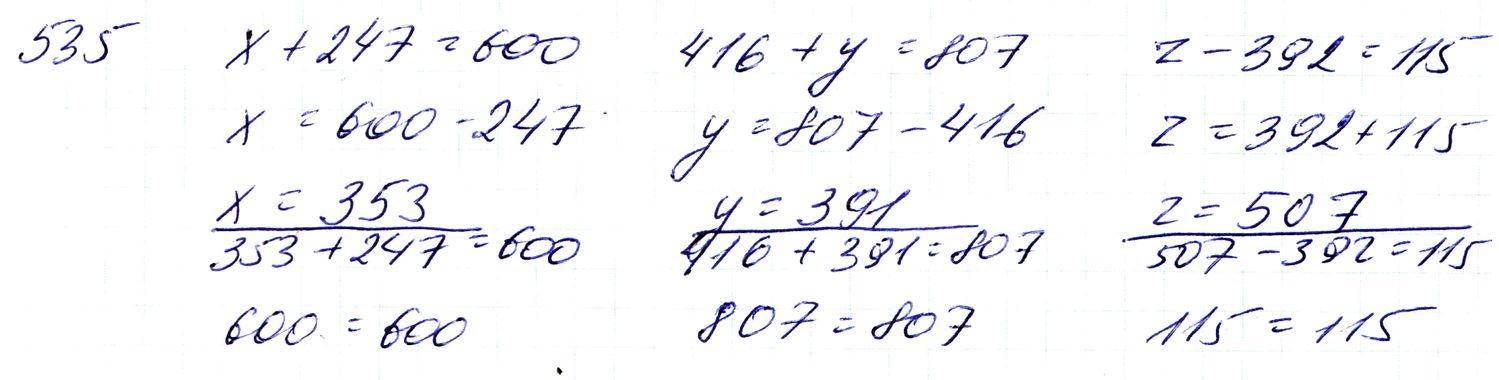 535 x + 247 = 600 416 + y = 807 z - 392 = 115
x = 600 - 247 y = 807 - 416 z = 392 + 115
x = 353 y = 391 z = 507
353 + 247 = 600 416 + 391 = 807 507 - 392 = 115
600 = 600 807 = 807 115 = 115